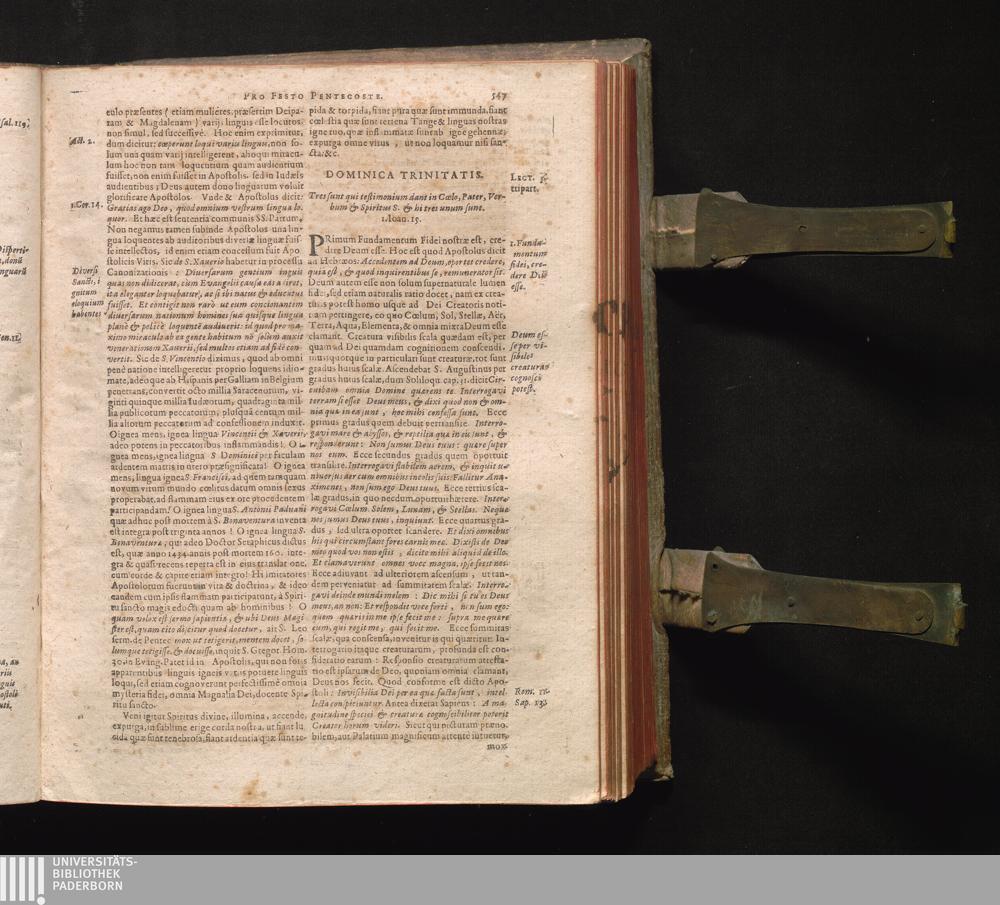 PRO FESTO PENTECOSTE. 547
culo præsentes (etiam mulieres, præsertim Deipa-
ram & Magdalenam) varijs linguis esse locutos,
non simul, sed successivè. Hoc enim exprimitur,
Act. 2.
dum dicitur: cœperunt loqui varijs linguis, non so-
lum una quam varij intelligerent, alioqui miracu-
lum hoc non tam loquentium quam audientium
fuisset, non enim fuisset in Apostolis, sed in Iudæis
audientibus; Deus autem dono linguarum voluit
glorificare Apostolos. Vnde & Apostolus dicit:
1. Cor. 14.
Gratias ago Deo, quod omnium vestrum lingua lo-
quor. Et hæc est sententia communis SS. Patrum.
Non negamus tamen subinde Apostolos una lin-
gua loquentes ab auditoribus diversæ linguæ fuis-
se intellectos, id enim etiam concessum fuit Apo-
stolicis Viris. Sic de S. Xaverio habetur in processu
Diversi
Sancti,
eloquium
habentes
Canonizationis: Diversarum gentium linguis
quas non didicerat, cùm Evangelij causa eas adiret,
ita eleganter loquebatur, ac si ibi natus & educatus
fuisset. Et contigit non rarò ut eum concionantem
diversarum nationum homines sua quisque lingua
planè & politè loquentē audiverit: id quod pro ma-
ximo miraculo ab ea gente habitum nō solum auxit
venerationem Xaverij, sed multos etiam ad fidē con-
vertit. Sic de S. Vincentio diximus, quod ab omni
penè natione intelligeretur proprio loquens idio-
mate, adeo que ab Hispanis per Galliam in Belgium
penetrans, convertit octo millia Saracenorum, vi-
ginti quinque millia Iudæorum, quadraginta mil-
lia publicorum peccatorum, plusquā centum mil-
lia aliorum peccatorum ad confessionem induxit.
O ignea mens, ignea lingua Vincentij & Xaverij,
adeo potens in peccatoribus inflammandis! O i-
gnea mens, ignea lingua S. Dominici per faculam
ardentem matris in utero præsignificata! O ignea
mens, lingua ignea S. Francisci, ad quem tanquam
novum virum mundo cœlitus datum omnis sexus
properabat, ad flammam eius ex ore procedentem
participandam! O ignea lingua S. Antonii Paduani
quæ adhuc post mortem à S. Bonaventura inventa
est integra post triginta annos! O ignea lingua S.
Bonaventuræ, qui adeo Doctor Seraphicus dictus
est, quæ anno 1434 annis post mortem 160. inte-
gra & quasi recens reperta est in eius translatione,
cum corde & capite etiam integro! Hi imitatores
Apostolorum fuerunt in vita & doctrina, & ideo
eandem cum ipsis flammam participarunt, à Spiri-
tu sancto magis edocti quam ab hominibus! O
quam velox est sermo sapientiæ, & ubi Deus Magi-
ster est, quam cito dicitur quod docetur, ait S. Leo
serm. de Pentec. mox ut tetigerit, mentem docet, so-
lumque tetigisse, est docuisse, inquit S. Gregor. Hom.
30. in Evang. Patet id in Apostolis, qui non foris
apparentibus linguis igneis varijs potuere linguis
loqui, sed etiam cognoverunt perfectissimè omnia
mysteria fidei, omnia Magnalia Dei, docente Spi-
ritu sancto.
Veni igitur Spiritus divine, illumina, accende,
expurga, in sublime erige corda nostra, ut fiant lu-
cida quæ sunt tenebrosa, fiant ardentia quæ sunt te-
pida & torpida, fiant pura quæ sunt immunda, fiant
cœlestia quæ sunt terrena. Tange & linguas nostras
igne tuo, quæ inflammatæ sunt ab igne gehennæ,
expurga omne virus, ut non loquamur nisi san-
cta, &c.
DOMINICA TRINITATIS.
LECT.
tripart.
Tres sunt qui testimonium dant in Cœlo, Pater, Ver-
bum & Spiritus S. & hi tres unum sunt.
1. Ioan. 15.
PRimum Fundamentum Fidei nostræ est, cre-
1. Funda-
mentum
fidei, cre-
dere Deū
esse.
dere Deum esse. Hoc est quod Apostolus dicit
ad Hebræos: Accedentem ad Deum, oportet credere,
quia est, & quod inquirentibus se, remunerator sit.
Deum autem esse non solum supernaturale lumen
fidei, sed etiam naturalis ratio docet, nam ex crea-
turis potest homo usque ad Dei Creatoris noti-
tiam pertingere, eo quo Cœlum, Sol, Stellæ, Aër,
Terra, Aqua, Elementa, & omnia mixta Deum esse
Deum es-
se per vi-
sibiles
creaturas
cognosci
potest.
clamant. Creatura visibilis scala quædam est, per
quam ad Dei quamdam cognitionem conscendi-
mus, quotque in particulari sunt creaturæ, tot sunt
gradus huius scalæ. Ascendebat S. Augustinus per
gradus huius scalæ, dum Soliloq. cap. 31. dicit Cir-
cuibam omnia Domine quærens te. Interrogavi
terram si esset Deus meus, & dixi quod non & om-
nia quæ in ea sunt, hoc mihi confessa sunt. Ecce
primus gradus quem debuit pertransire. Interro-
gavi mare & abyssos, & reptilia quæ in eis sunt, &
responderunt: Non sumus Deus tuus: quære super
nos eum. Ecce secundus gradus quem oportuit
transilire. Interrogavi flabilem aerem, & inquit u-
niversus aer cum omnibus incolis suis: Fallitur Ana-
ximenes, non sum ego Deus tuus. Ecce tertius sca-
læ gradus, in quo necdum oportuit hærere. Inter-
rogavi Cœlum, Solem, Lunam, & Stellas. Neque
nos sumus Deus tuus, inquiunt. Ecce quartus gra-
dus, sed ultra oportet scandere. Et dixi omnibus
his qui circumstant fores carnis meæ. Dixistis de Deo
meo quod vos non estis, dicite mihi aliquid de illo.
Et clamaverunt omnes voce magna, ipse fecit nos.
Ecce adiuvant ad ulteriorem ascensum, ut tan-
dem perveniatur ad summitatem scalæ. Interro-
gavi deinde mundi molem: Dic mihi si tu es Deus
meus, an non: Et respondit voce forti, non sum ego:
quem quæris in me ipse fecit me: supra me quære
eum, qui regit me, qui fecit me. Ecce summitas
scalæ, qua conscensa, invenitur is qui quæritur. In-
terrogatio itaque creaturarum, profunda est con-
sideratio earum: Responsio creaturarum attesta-
tio est ipsarum de Deo, quoniam omnia clamant,
Deus nos fecit. Quod conforme est dicto Apo-
Rom.
Sap. 13.
stoli: Invisibilia Dei per ea quæ facta sunt, intel-
lecta conspiciuntur. Antea dixerat Sapiens: A ma-
gnitudine speciei & creaturæ cognoscibiliter poterit
Creator horum videri. Sicut qui picturam præno-
bilem, aut Palatium magnificum attentè intuetur,
mox
UNIVERSITÄTS-
BIBLIOTHEK
PADERBORN